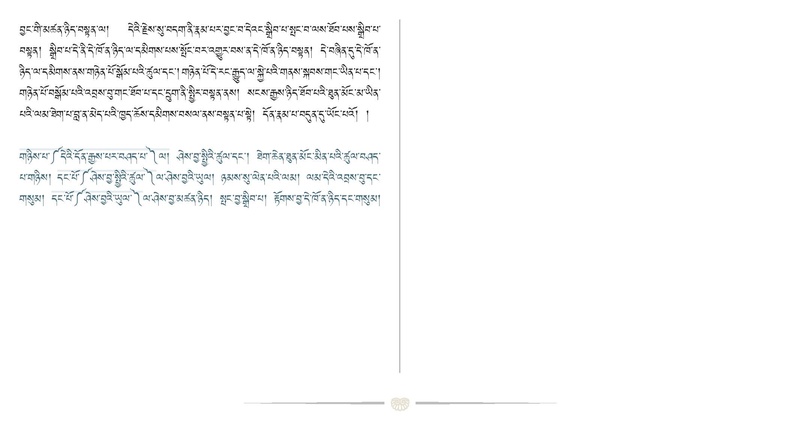 བྱང་གི་མཚན་ཉིད་བསྟན་ལ། དེའི་རྗེས་སུ་བདག་ནི་རྣམ་པར་བྱང་བ་དེའང་སྒྲིབ་པ་སྤང་བ་ལས་ཐོབ་པས་སྒྲིབ་པ་
བསྟན། སྒྲིབ་པ་དེ་ནི་དེ་ཁོ་ན་ཉིད་ལ་དམིགས་པས་སྤོང་བར་འགྱུར་བས་ན་དེ་ཁོ་ན་ཉིད་བསྟན། དེ་བཞིན་དུ་དེ་ཁོ་ན་
ཉིད་ལ་དམིགས་ནས་གཉེན་པོ་སྒོམ་པའི་ཚུལ་དང་། གཉེན་པོ་དེ་རང་རྒྱུད་ལ་སྐྱེ་བའི་གནས་སྐབས་གང་ཡིན་པ་དང་།
གཉེན་པོ་བསྒོམ་པའི་འབྲས་བུ་གང་ཐོབ་པ་དང་དྲུག་ནི་སྤྱིར་བསྟན་ནས། སངས་རྒྱས་ཉིད་ཐོབ་པའི་ཐུན་མོང་མ་ཡིན་
པའི་ལམ་ཐེག་པ་བླ་ན་མེད་པའི་ཁྱད་ཆོས་དམིགས་བསལ་ནས་བསྟན་པ་སྟེ། དོན་རྣམ་པ་བདུན་དུ་ཡོང་པའོ། །
གཉིས་པ་༼དེའི་དོན་རྒྱས་པར་བཤད་པ་༽ལ། ཤེས་བྱ་སྤྱིའི་ཚུལ་དང་། ཐེག་ཆེན་ཐུན་མོང་མིན་པའི་ཚུལ་བཤད་
པ་གཉིས། དང་པོ་༼ཤེས་བྱ་སྤྱིའི་ཚུལ་༽ལ་ཤེས་བྱའི་ཡུལ། ཉམས་སུ་ལེན་པའི་ལམ། ལམ་དེའི་འབྲས་བུ་དང་
གསུམ། དང་པོ་༼ཤེས་བྱའི་ཡུལ་༽ལ་ཤེས་བྱ་མཚན་ཉིད། སྤང་བྱ་སྒྲིབ་པ། རྟོགས་བྱ་དེ་ཁོ་ན་ཉིད་དང་གསུམ།